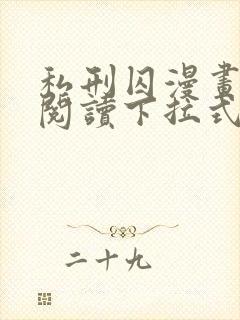 私刑囚漫畫
閱讀下拉式
二十九